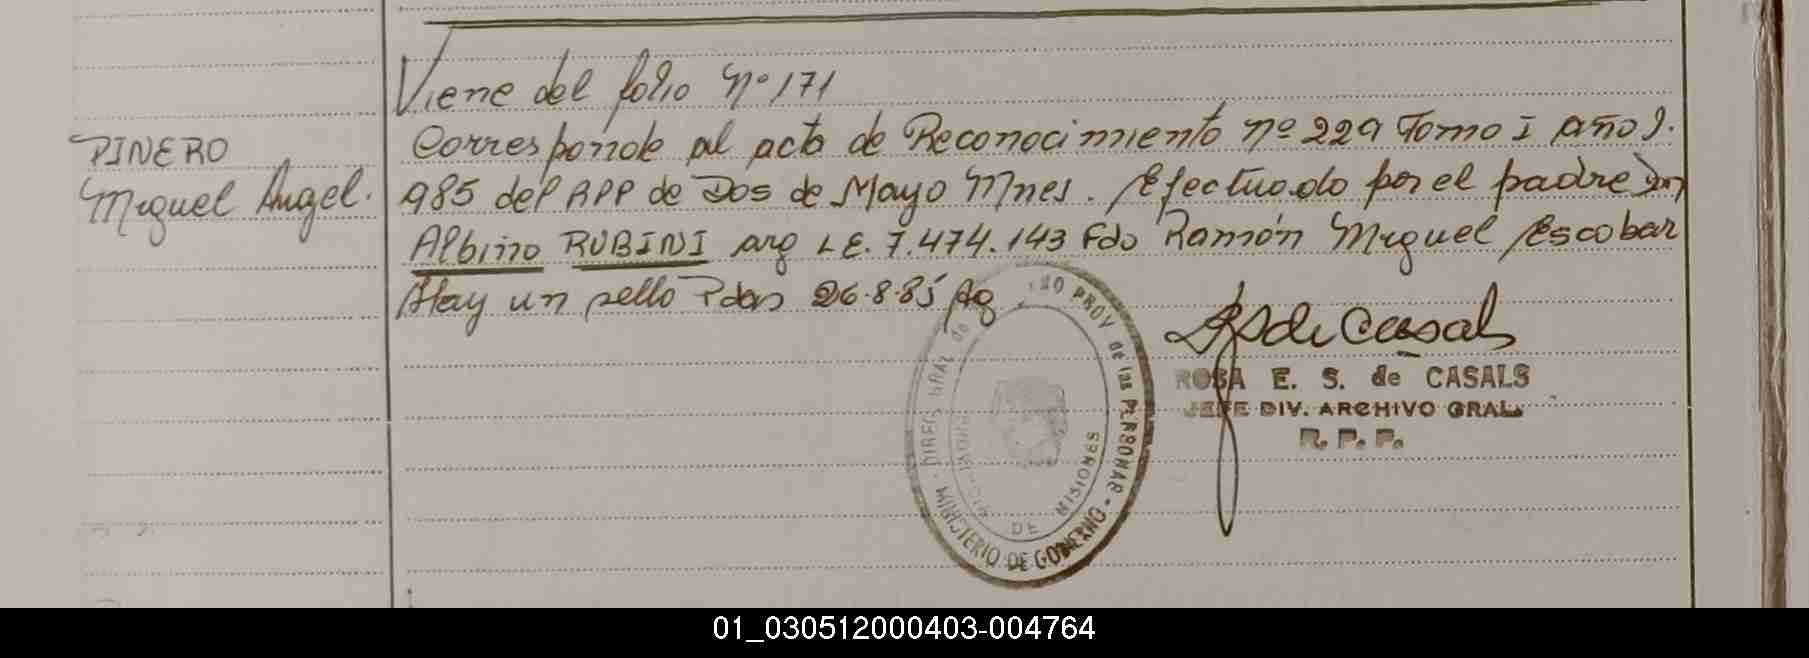 Viene del folio Nº 171
PINERO
Miguel Angel.
Corresponde al acta de Reconocimiento nº 229 Tomo I año 1.
985 del RPP de Dos de Mayo Mnes. Efectuado por el padre Don
Albino RUBINI arg L E. 7.474.143 Fdo Ramón Miguel Escobar
Hay un sello Pdas 26.8.85 Ag
ROSA E. S. de CASALS
JEFE DIV. ARCHIVO GRAL.
R. P. P.
PROV de las PERSONAS - MINISTERIO DE GOBIERNO - DIREC. GRAL de
PROVINCIA DE MISIONES
01_030512000403-004764